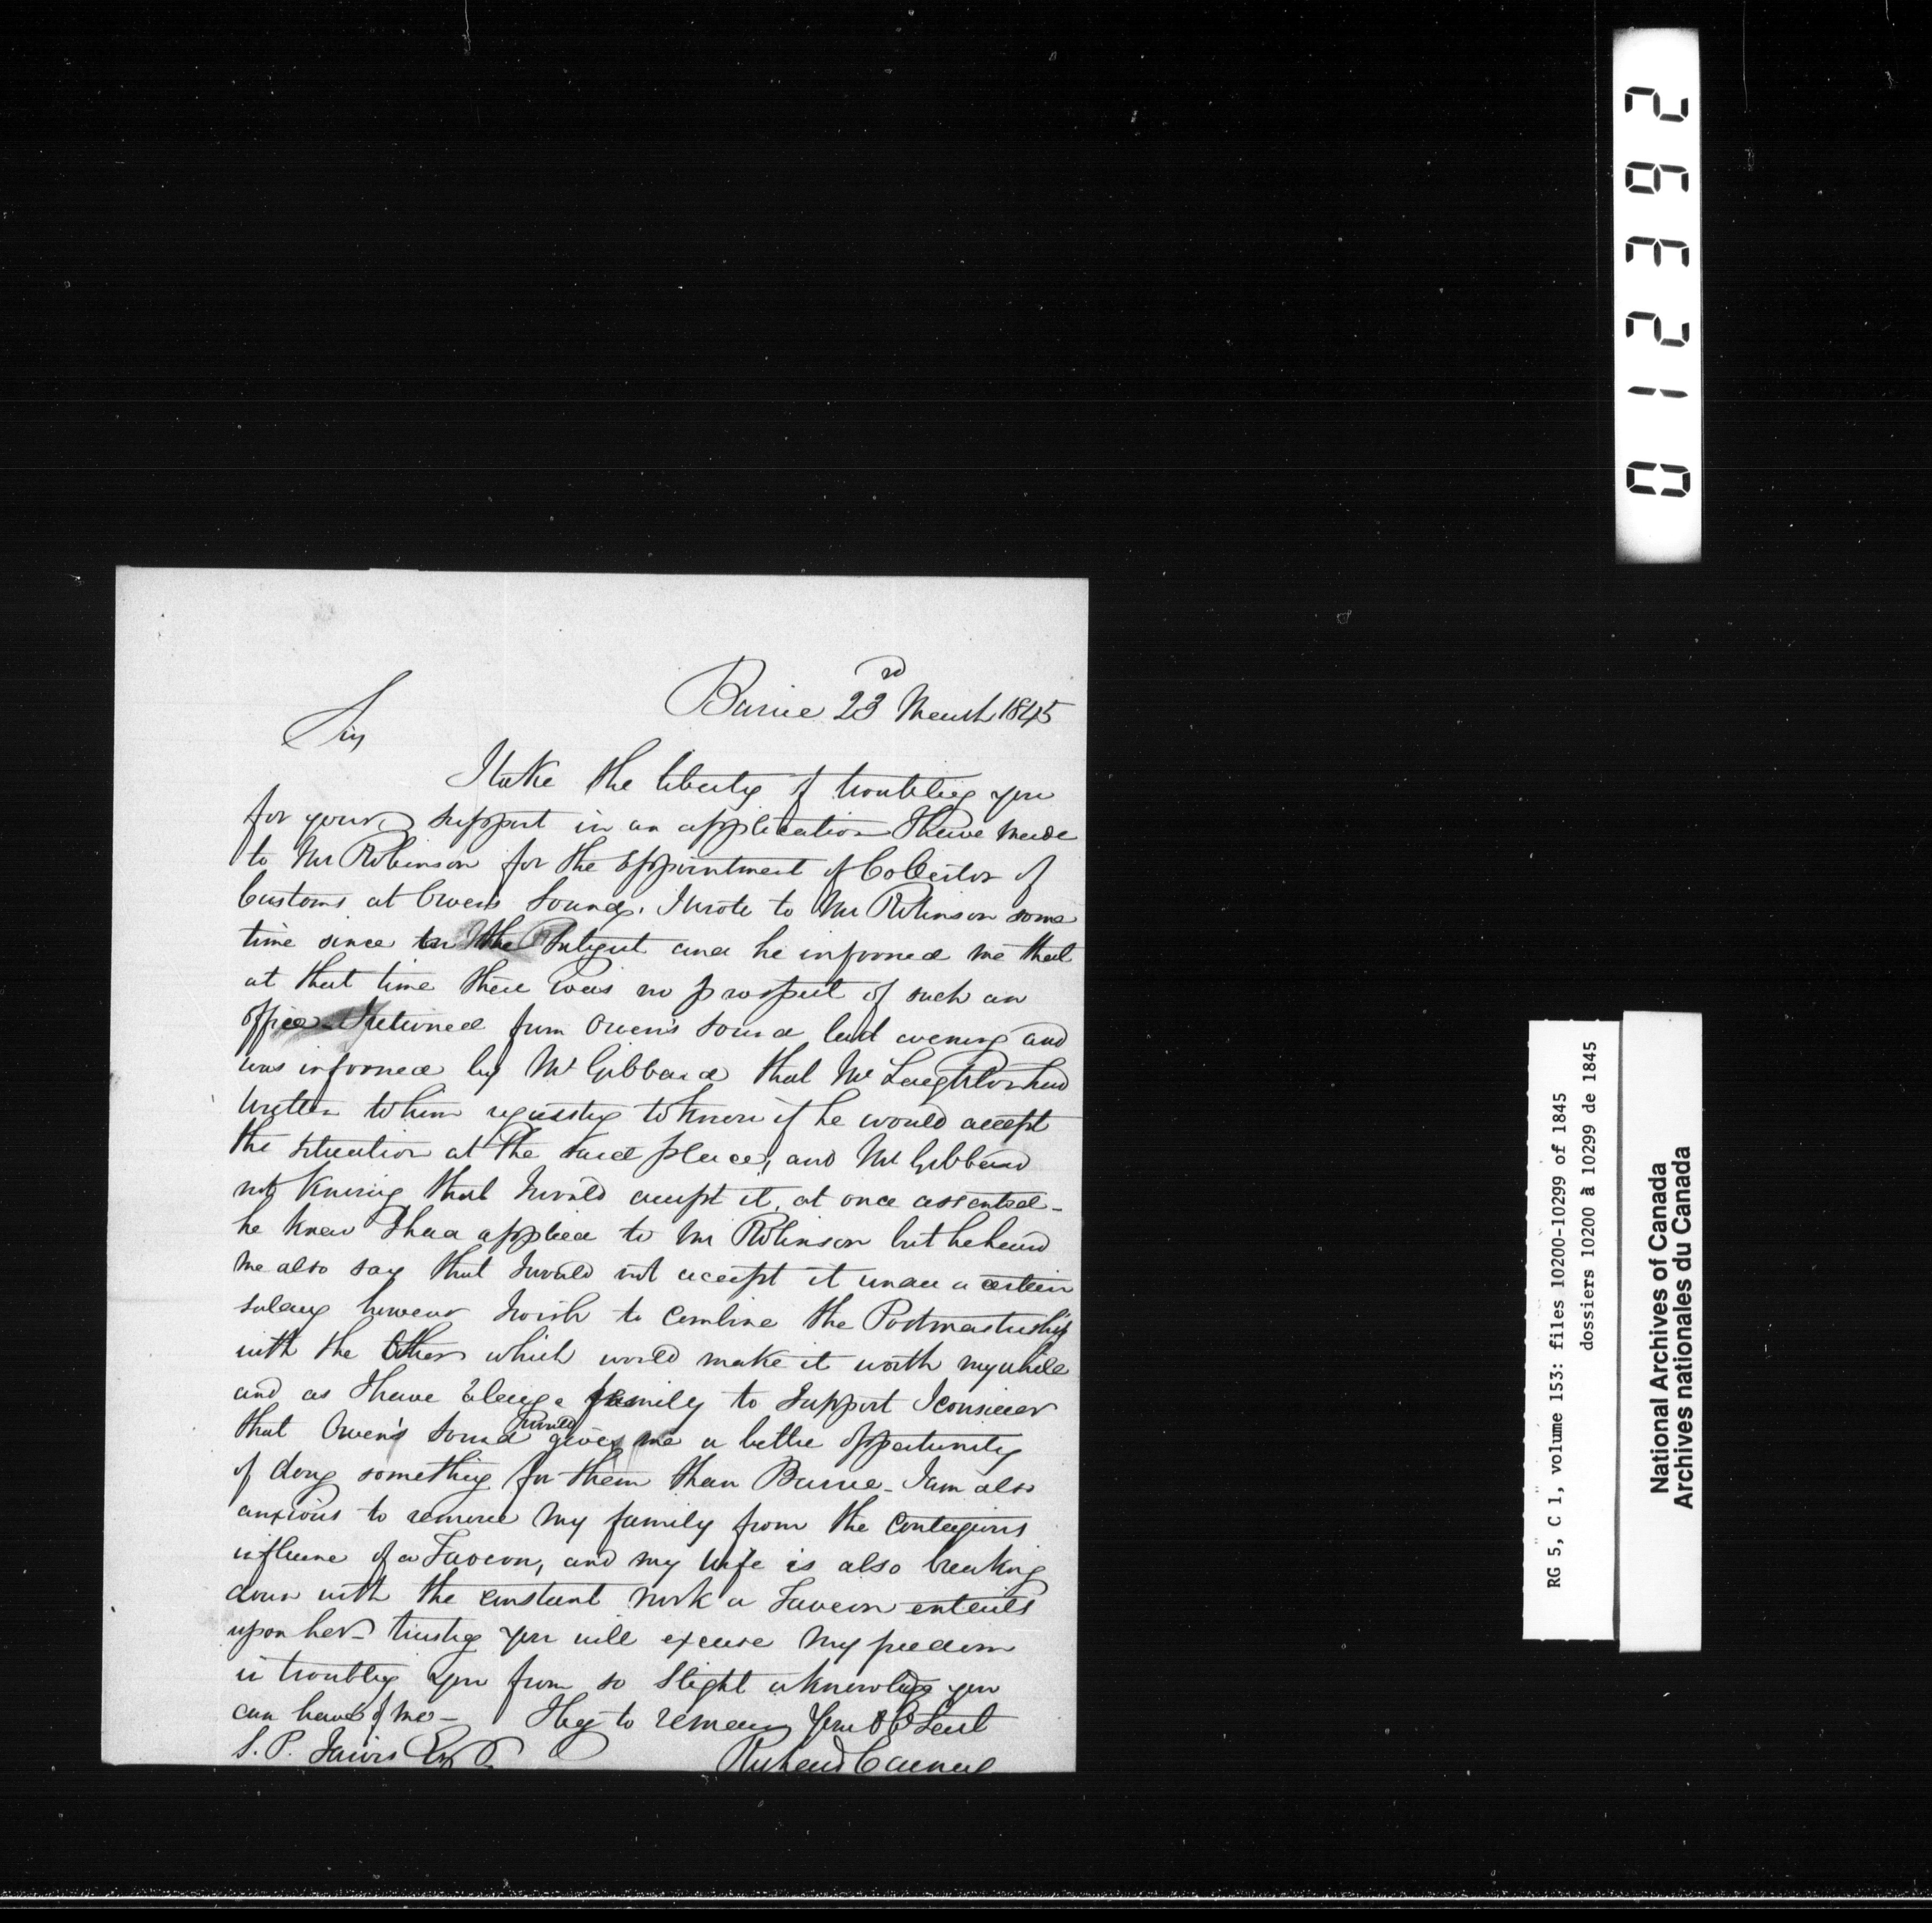 Barrie 23rd March 1845
Sir
I take the liberty of troubling you
for your support in an application I have made
to Mr Robinson for the appointment of Collector of
Customs at Owen's Sound. I wrote to Mr Robinson some
time since on the subject and he informed me that
at that time there was no prospect of such an
office. I returned from Owen's Sound last evening and
was informed by Mr Gibbard that Mr had
written to him requesting to know if he would accept
the situation at the said place, and Mr Gibbard
not knowing that I would accept it, at once assented -
he knew I had applied to Mr Robinson but he heard
me also say that I would not accept it under a certain
salary however I wish to combine the Postmastership
with the Other which would make it worth my while
and as I have a large family to support I consider
that Owen's Sound would give me a better opportunity
of doing something for them than Barrie - I am also
anxious to remove my family from the contagious
influence of a Tavern, and my wife is also breaking
down with the constant work a Tavern entails
upon her - trusting you will excuse my freedom
in troubling you from so slight a knowledge you
can have of me - I beg to remain Your Obt Servt
S. P. Jarvis Esqr Richard Carney
012392
RG 5, C 1, volume 153: files 10200-10299 of 1845
dossiers 10200 à 10299 de 1845
National Archives of Canada
Archives nationales du Canada